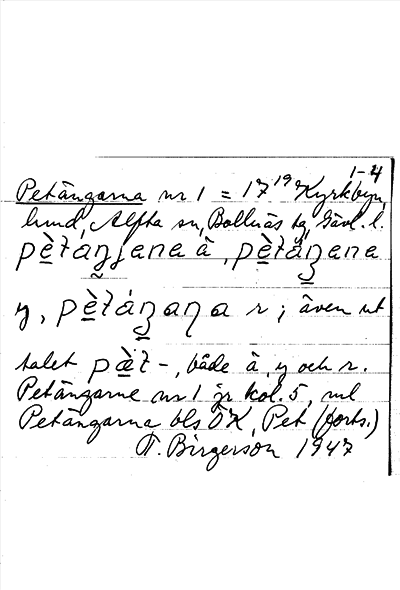 1-4
Petängarna nr 1 = 17¹⁹ Kyrkbyn,
lund, Alfta sn, Bollnäs tg, Gävl. l.
pètaŋjana ä, pètáŋana
y, pètáŋana r; även ut
talet pèt-, både ä, y och r.
Petängarne nr 1 jr kol. 5, ml
Petängarna bls ÖK, Pet (forts.)
T. Birgerson 1947